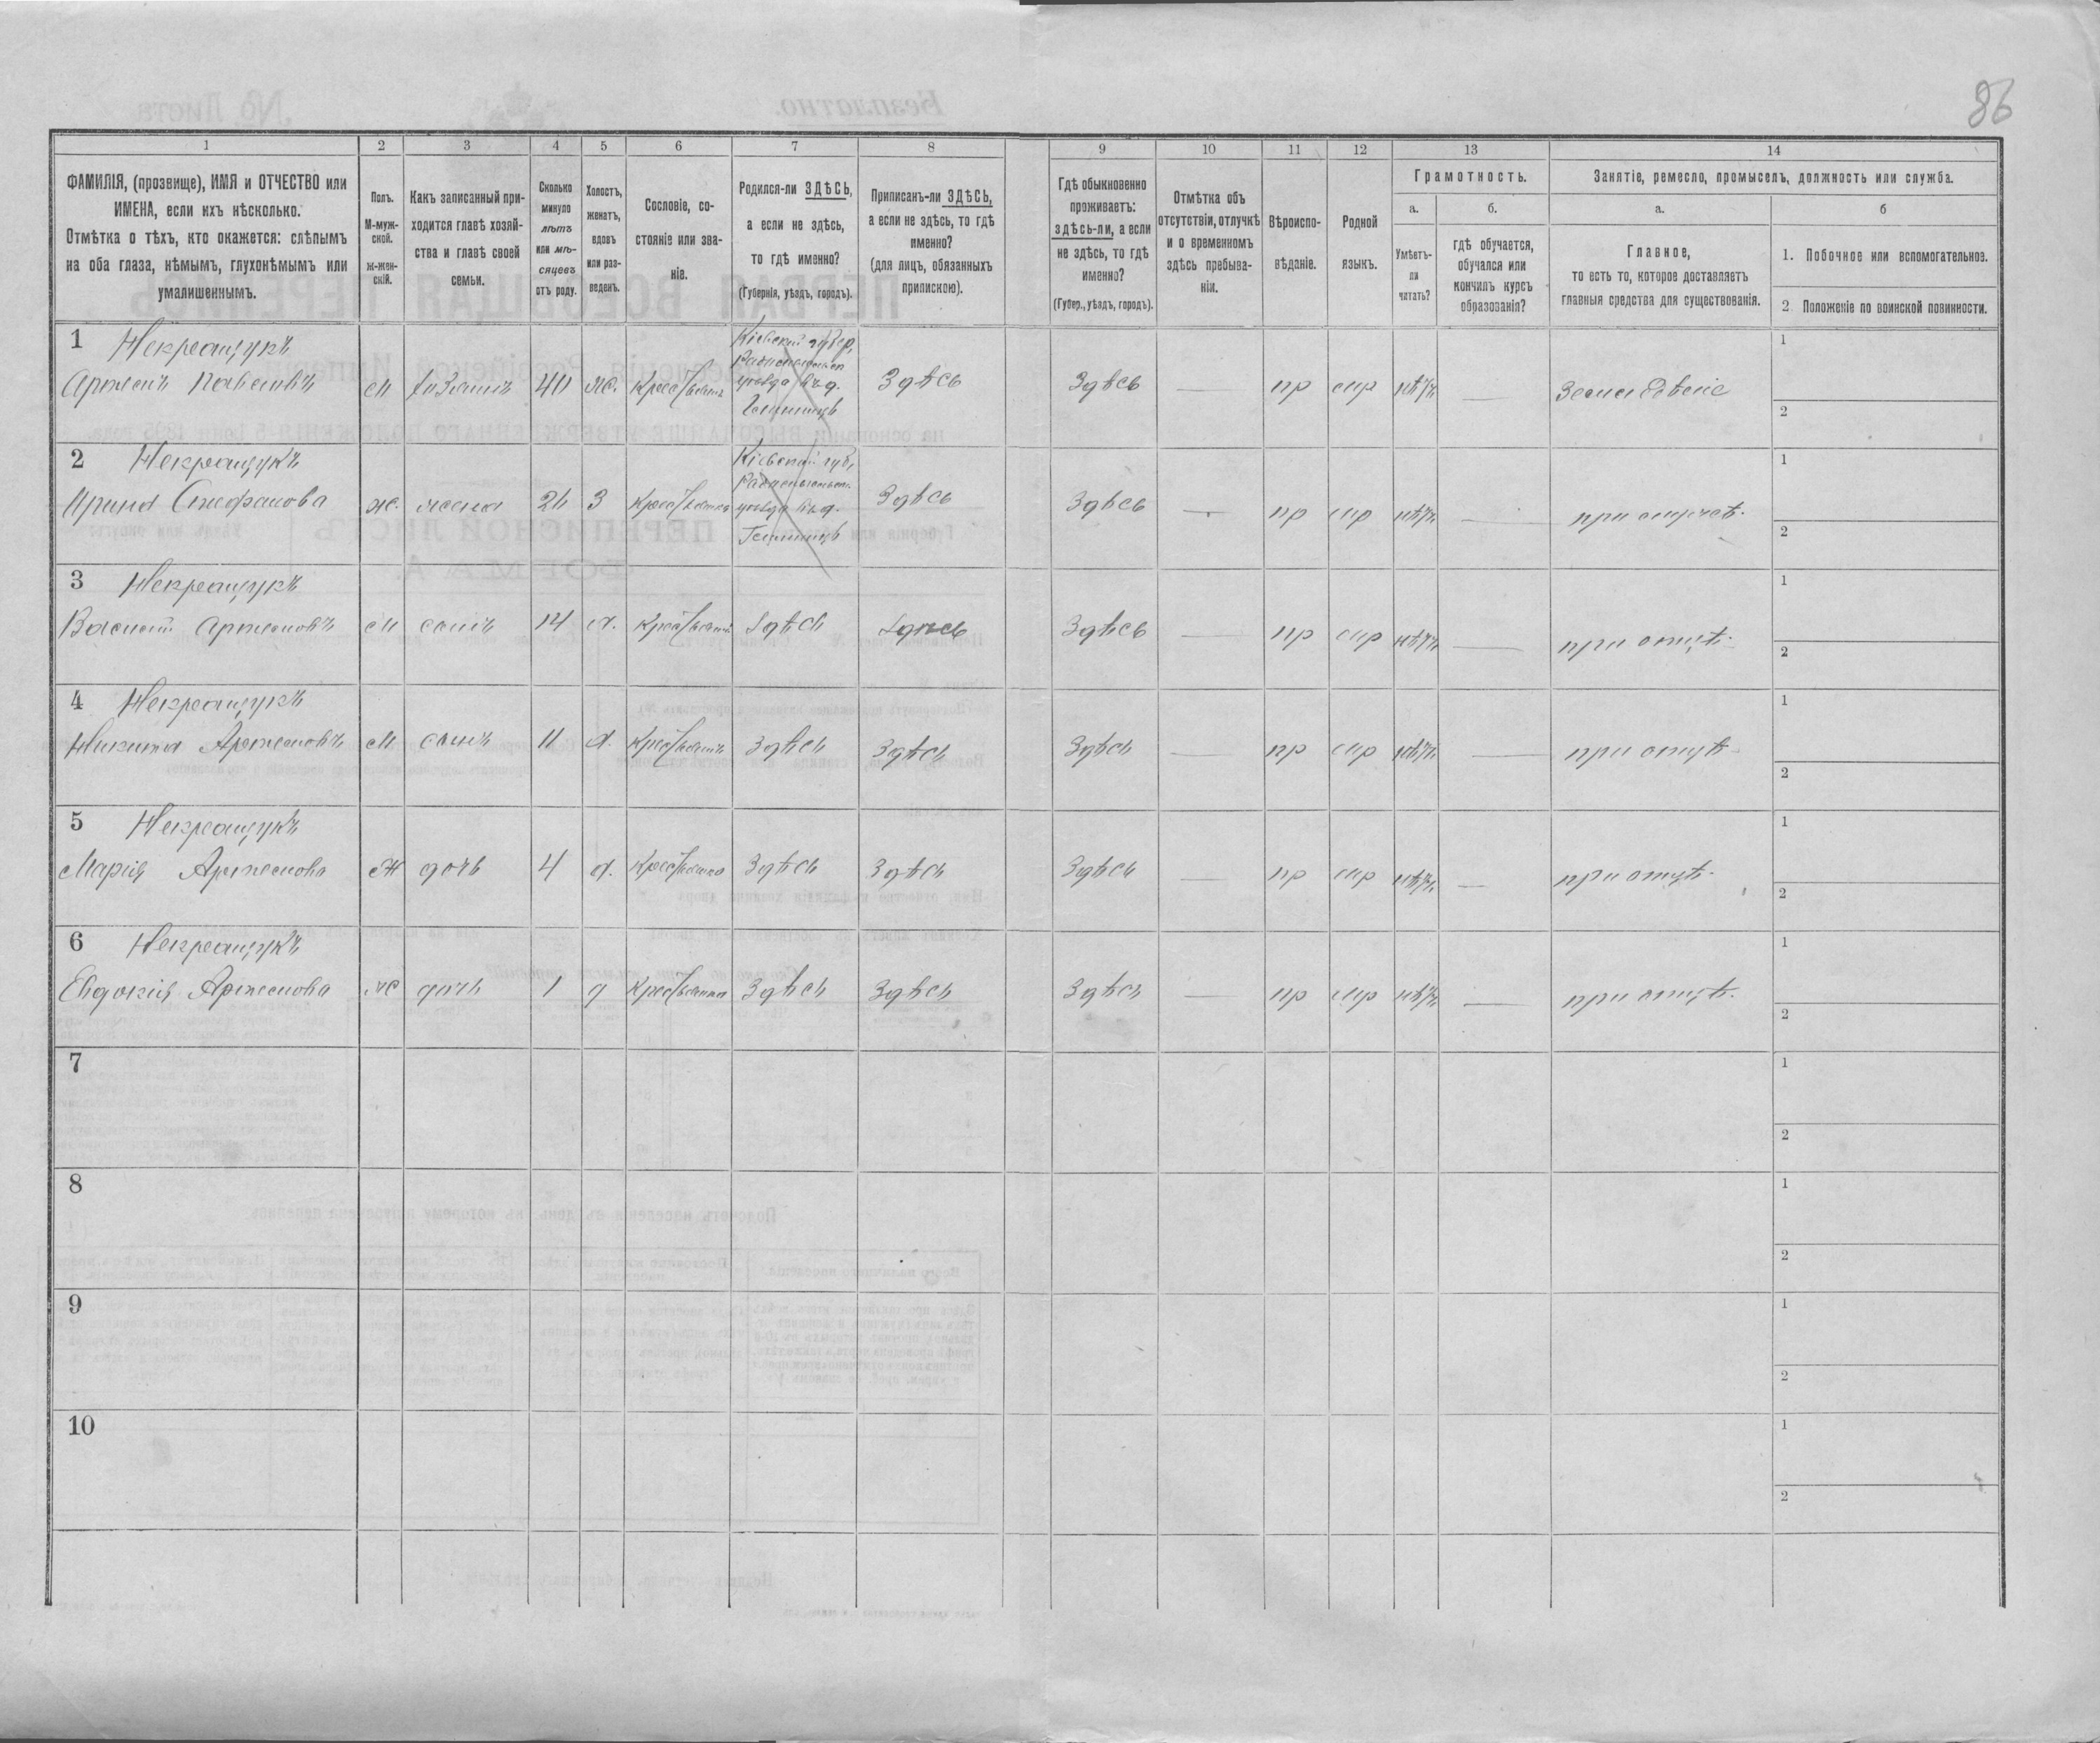 86
1
2
3
4
5
6
7
8
9
10
11
12
13
14
ФАМИЛІЯ, (прозвище), ИМЯ и ОТЧЕСТВО или
ИМЕНА, если ихъ нѣсколько.
Отмѣтка о тѣхъ, кто окажется: слѣпымъ
на оба глаза, нѣмымъ, глухонѣмымъ или
умалишеннымъ.
Полъ.
М-муж-
ской.
ж-жен-
скій.
Какъ записанный при-
ходится главѣ хозяй-
ства и главѣ своей
семьи.
Сколько
минуло
лѣтъ
или мѣ-
сяцевъ
отъ роду.
Холостъ,
женатъ,
вдовъ
или раз-
веденъ.
Сословіе, со-
стояніе или зва-
ніе.
Родился-ли ЗДѢСЬ,
а если не здѣсь,
то гдѣ именно?
(Губернія, уѣздъ, городъ).
Приписанъ-ли ЗДѢСЬ,
а если не здѣсь, то гдѣ
именно?
(для лицъ, обязанныхъ
припискою).
Гдѣ обыкновенно
проживаетъ:
здѣсь-ли, а если
не здѣсь, то гдѣ
именно?
(Губер., уѣздъ, городъ).
Отмѣтка объ
отсутствіи, отлучкѣ
и о временномъ
здѣсь пребыва-
ніи.
Вѣроиспо-
вѣданіе.
Родной
языкъ.
Грамотность.
а.
Умѣетъ-
ли
читать?
б.
гдѣ обучается,
обучался или
кончилъ курсъ
образованія?
Занятіе, ремесло, промыселъ, должность или служба.
а.
Главное,
то есть то, которое доставляетъ
главныя средства для существованія.
б
1. Побочное или вспомогательное.
2. Положеніе по воинской повинности.
1 Некреащукъ
Артемъ Павловъ м хозяинъ 40 ж. Здѣсь Здѣсь — пр мр нѣтъ — Земледѣліе
1
2
2 Некреащукъ
Ирина Стефанова ж. жена З Здѣсь Здѣсь — пр мр нѣтъ —
1
2
3 Некреащукъ
Василій Артемовъ м сынъ 14 Здѣсь Здѣсь Здѣсь — пр мр нѣтъ — при отцѣ.
1
2
4 Некреащукъ
Никита Артемовъ м сынъ 11 Здѣсь Здѣсь Здѣсь — пр мр нѣтъ — при отцѣ
1
2
5 Некреащукъ
Марія Артемова ж дочь 4 Здѣсь Здѣсь Здѣсь — пр мр нѣтъ — при отцѣ.
1
2
6 Некреащукъ
Евдокія Артемова ж дочь 1 Здѣсь Здѣсь Здѣсь — пр мр нѣтъ — при отцѣ.
1
2
7
1
2
8
1
2
9
1
2
10
1
2